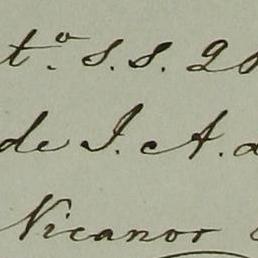 tº. S. S. 20
de J. A. d
Nicanor